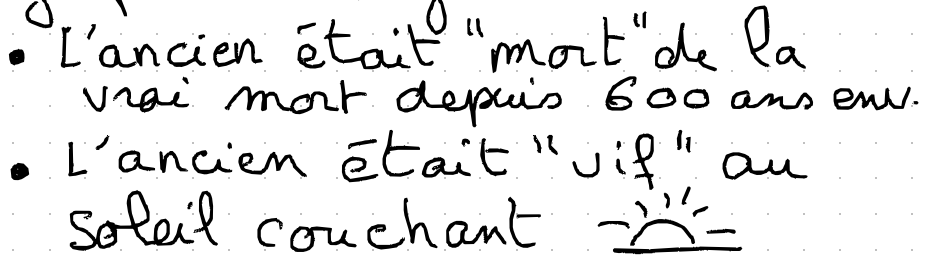 • L'ancien était "mort" de la
vrai mort depuis 600 ans env.
• L'ancien était "vif" au
soleil couchant